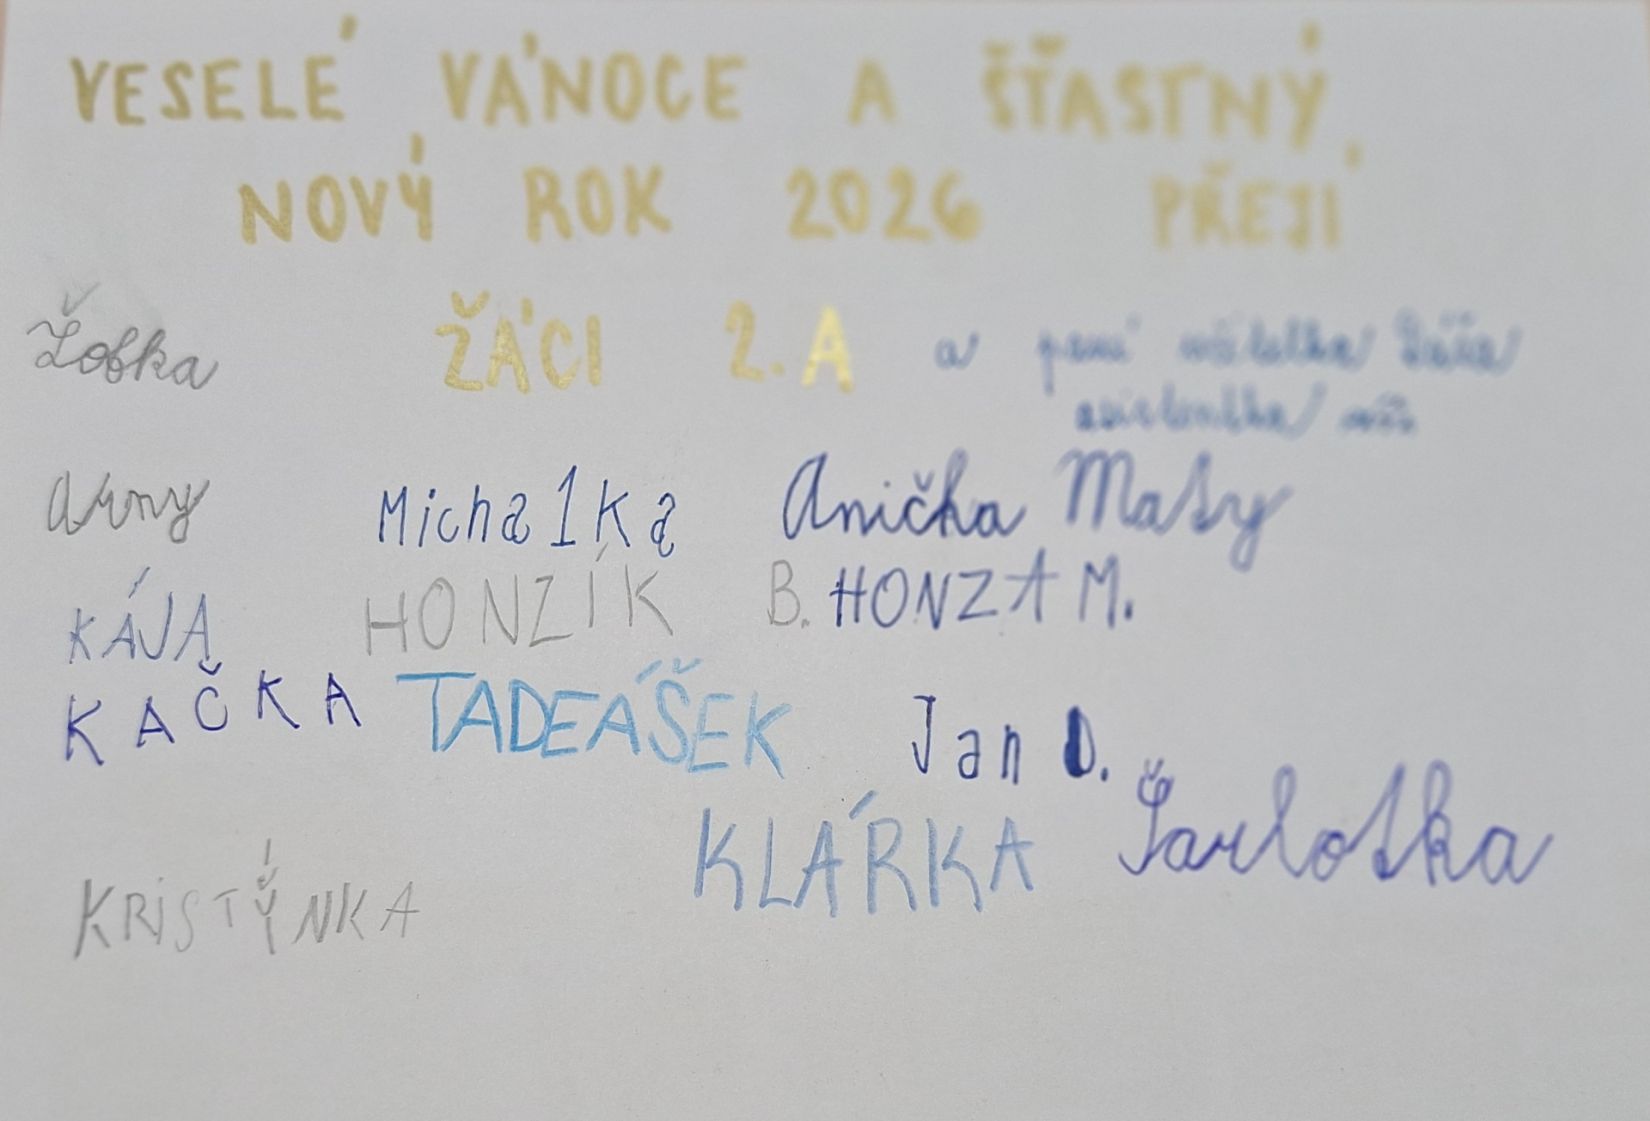 VESELÉ VÁNOCE A ŠŤASTNÝ
NOVÝ ROK 2026 PŘEJÍ
ŽÁCI 2.A a paní učitelka
asistentka
Žofka
Arny Michalka Anička Maty
KÁJA HONZÍK B. HONZA M.
KAČKA TADEÁŠEK Jan D.
KLÁRKA Šarlotka
KRISTÝNKA